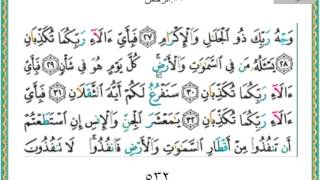 الرحمن
وَجْهُ رَبِّكَ ذُو الْجَلَالِ وَالْإِكْرَامِ ﴿٢٧﴾ فَبِأَيِّ آلَاءِ رَبِّكُمَا تُكَذِّبَانِ
﴿٢٨﴾ يَسْأَلُهُ مَن فِي السَّمَاوَاتِ وَالْأَرْضِ كُلَّ يَوْمٍ هُوَ فِي شَأْنٍ ﴿٢٩﴾ فَبِأَيِّ
آلَاءِ رَبِّكُمَا تُكَذِّبَانِ ﴿٣٠﴾ سَنَفْرُغُ لَكُمْ أَيُّهَ الثَّقَلَانِ ﴿٣١﴾ فَبِأَيِّ
آلَاءِ رَبِّكُمَا تُكَذِّبَانِ ﴿٣٢﴾ يَا مَعْشَرَ الْجِنِّ وَالْإِنسِ إِنِ اسْتَطَعْتُمْ
أَن تَنفُذُوا مِنْ أَقْطَارِ السَّمَاوَاتِ وَالْأَرْضِ فَانفُذُوا لَا تَنفُذُونَ
٥٣٢